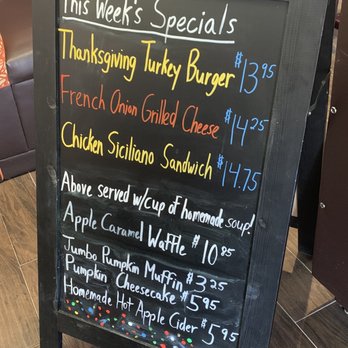 This Week's Specials
Thanksgiving Turkey Burger $13.95
French Onion Grilled Cheese $14.25
Chicken Siciliano Sandwich $14.75
Above served w/cup of homemade soup!
Apple Caramel Waffle $10.95
Jumbo Pumpkin Muffin $3.25
Pumpkin Cheesecake $5.95
Homemade Hot Apple Cider $5.95